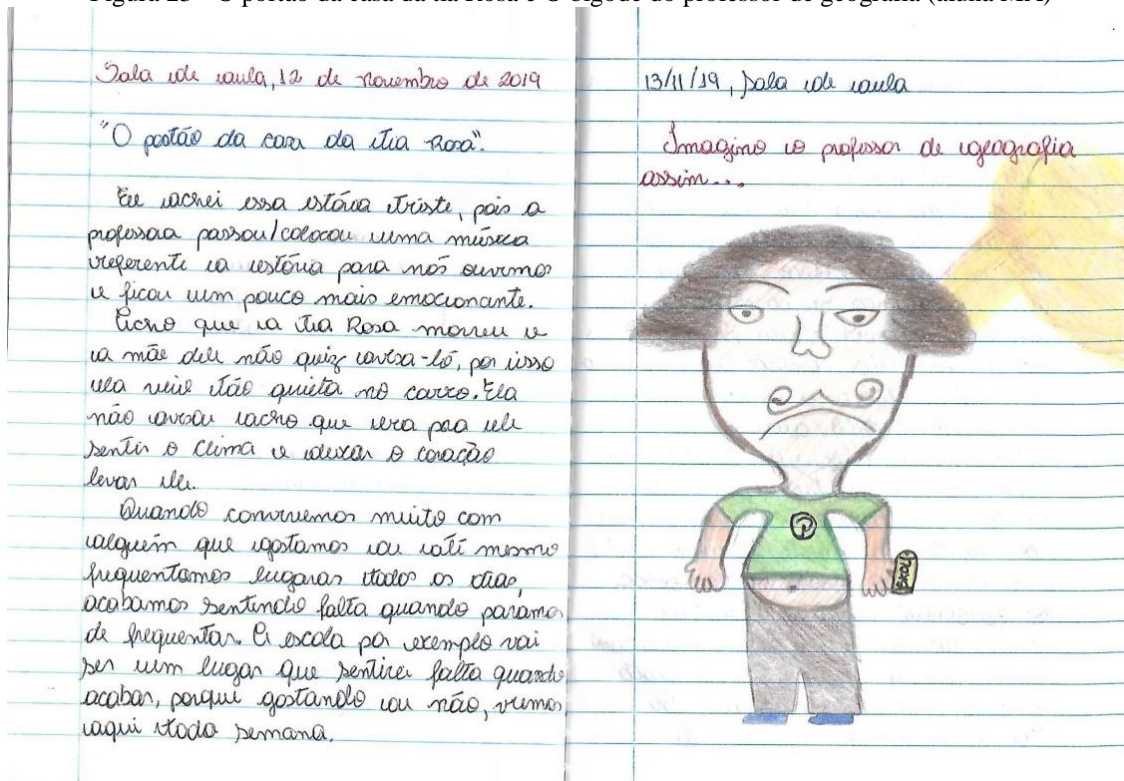 Sala de aula, 12 de novembro de 2019
"O portão da casa da tia Rosa".
Eu achei essa estória triste, pois a
professora passou/colocou uma música
referente a estória para nós ouvirmos
e ficou um pouco mais emocionante.
Acho que a tia Rosa morreu e
a mãe dele não quiz avisa-ló, por isso
ela veio tão quieta no carro. Ela
não avisou acho que era paa ele
sentir o clima e deixar o coração
levar ele.
Quando convivemos muito com
alguém que gostamos ou até mesmo
frequentamos lugaras todos os dias,
acabamos sentindo falta quando paramos
de frequentar. A escola por exemplo vai
ser um lugar que sentirei falta quando
acabar, porque gostando ou não, viemos
aqui toda semana.
13/11/19, Sala de aula
Imagino o professor de geografia
assim...